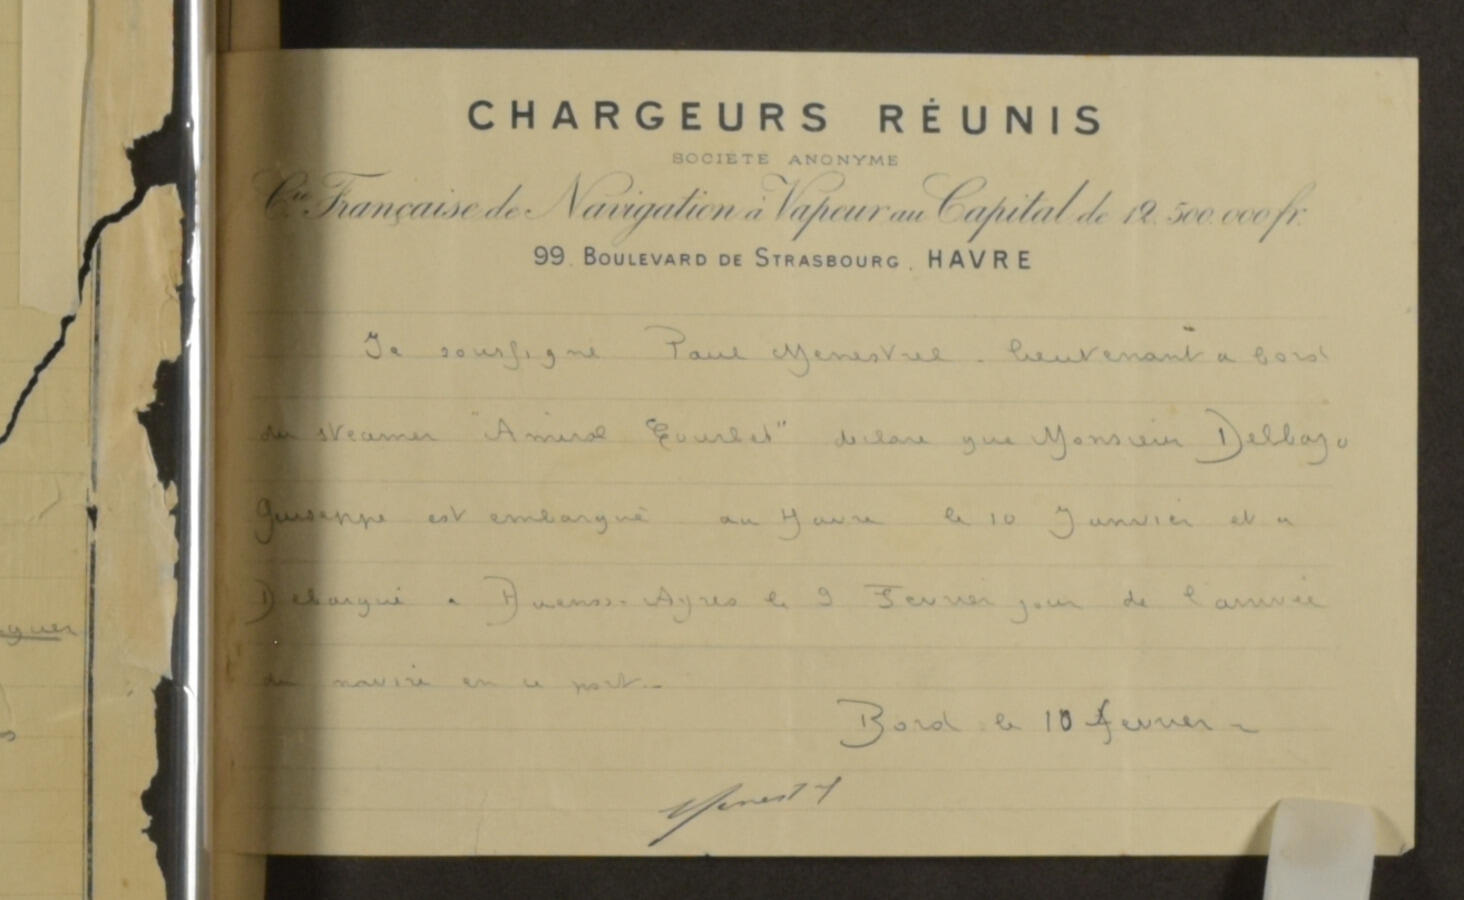 CHARGEURS RÉUNIS
SOCIÉTÉ ANONYME
Cie Française de Navigation à Vapeur au Capital de 12.500.000 fr.
99. BOULEVARD DE STRASBOURG. HAVRE
Je soussigné Paul Menestrel. lieutenant a bord
du steamer "Amiral Courbet" declare que Monsieur
Guiseppe est embarqué au Havre le 10 Janvier et a
Debarqué a Buenos-Ayres le 9 Fevrier jour de l'arrivée
du navire en ce port.
Bord le 10 fevrier